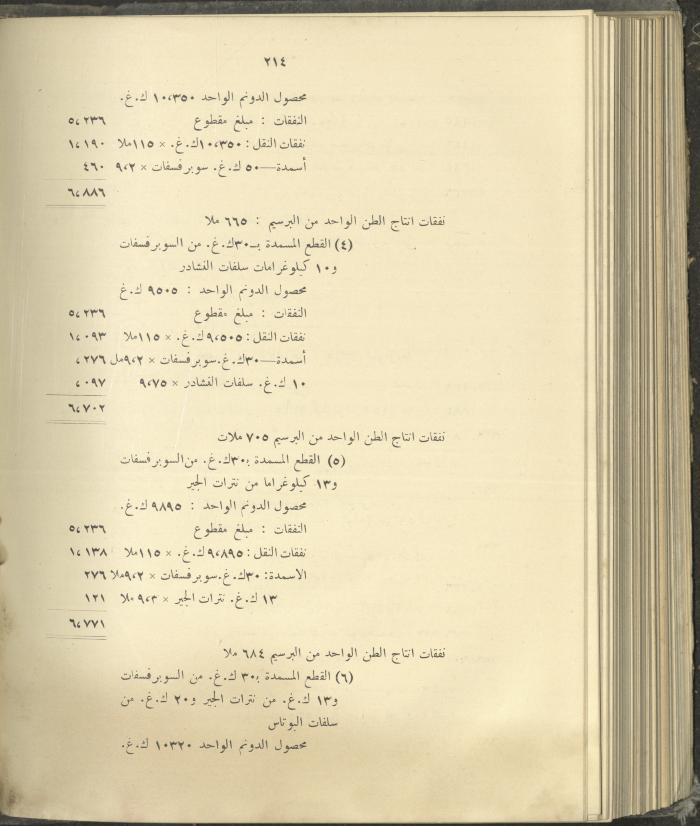 ٢١٤
محصول الدونم الواحد ١٠،٣٥٠ ك.غ.
النفقات : مبلغ مقطوع ٥،٢٣٦
نفقات النقل : ١٠،٣٥٠ك.غ. × ١١٥ملا ١،١٩٠
أسمدة—٥٠ ك.غ. سوبرفسفات × ٩،٢ ٤٦٠
٦،٨٨٦
نفقات انتاج الطن الواحد من البرسيم : ٦٦٥ ملا
(٤) القطع المسمدة بـ٣٠ك.غ. من السوبرفسفات
و١٠ كيلوغرامات سلفات النشادر
محصول الدونم الواحد : ٩٥٠٥ ك.غ
النفقات : مبلغ مقطوع ٥،٢٣٦
نفقات النقل : ٩،٥٠٥ك.غ. × ١١٥ملا ١،٠٩٣
أسمدة—٣٠ك.غ.سوبرفسفات × ٩،٢مل ،٢٧٦
١٠ ك.غ. سلفات النشادر × ٩،٧٥ ،٠٩٧
٦،٧٠٢
نفقات انتاج الطن الواحد من البرسيم ٧٠٥ ملات
(٥) القطع المسمدة بـ٣٠ك.غ. من السوبرفسفات
و١٣ كيلوغراما من نترات الجير
محصول الدونم الواحد : ٩٨٩٥ ك.غ.
النفقات : مبلغ مقطوع ٥،٢٣٦
نفقات النقل : ٩،٨٩٥ك.غ. × ١١٥ملا ١،١٣٨
الاسمدة : ٣٠ك.غ.سوبرفسفات × ٩،٢ملا ٢٧٦
١٣ ك.غ. نترات الجير × ٩،٣ ملا ١٢١
٦،٧٧١
نفقات انتاج الطن الواحد من البرسيم ٦٨٤ ملا
(٦) القطع المسمدة بـ٣٠ ك.غ. من السوبرفسفات
و١٣ ك.غ. من نترات الجير و٢٠ ك.غ. من
سلفات البوتاس
محصول الدونم الواحد ١٠٣٢٠ ك.غ.